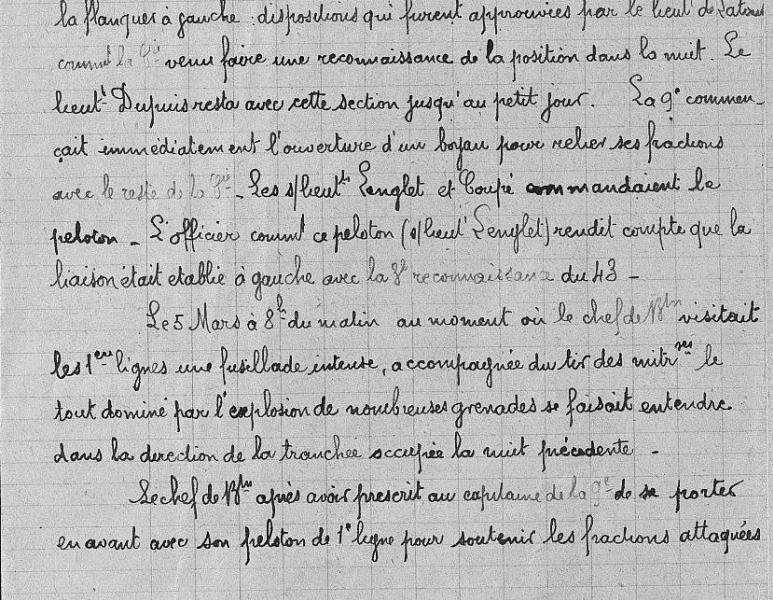 la flanquer à gauche : dispositions qui furent approuvées par le lieut de
commt la Cie venu faire une reconnaissance de la position dans la nuit. Le
lieut Dupuis resta avec cette section jusqu'au petit jour. La 9e commen-
çait immédiatement l'ouverture d'un boyau pour relier ses fractions
avec le reste de la Cie - Les s/lieuts Lenglet et Coupé commandaient le
peloton - L'officier commt ce peloton (s/lieut Lenglet) rendit compte que la
liaison était etablie à gauche avec la reconnaissance du 43 -
Le 5 Mars à 8h du matin au moment où le chef de Btn visitait
les 1eres lignes une fusillade intense, accompagnée du tir des mitres le
tout dominé par l'explosion de nombreuses grenades se faisait entendre
dans la direction de la tranchée occupée la nuit précédente -
Le chef de Btn après avoir prescrit au capitaine de la 9e de se porter
en avant avec son peloton de 1e ligne pour soutenir les fractions attaquées